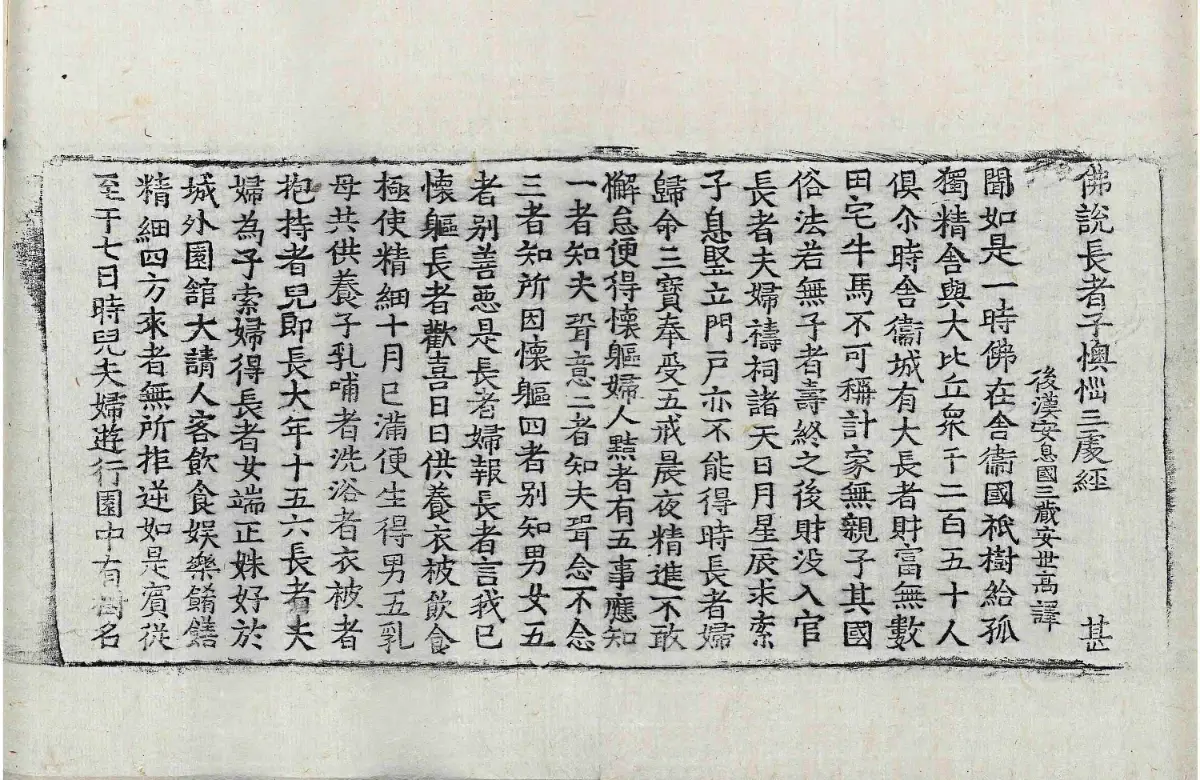 佛說長者子懊惱三處經 甚
後漢安息國三藏安世高譯
聞如是一時佛在舍衛國祇樹給孤
獨精舍與大比丘衆千二百五十人
俱尒時舍衛城有大長者財富無數
田宅牛馬不可稱計家無親子其國
俗法若無子者壽終之後財没入官
長者夫婦禱祠諸天日月星辰求索
子息竪立門戶亦不能得時長者婦
歸命三寶奉受五戒晨夜精進不敢
懈怠便得懷軀婦人黠者有五事應知
一者知夫聟意二者知夫聟念不念
三者知所因懷軀四者別知男女五
者別善惡是長者婦報長者言我已
懷軀長者歡喜日日供養衣被飮食
極使精細十月已滿便生得男五乳
母共供養子乳哺者洗浴者衣被者
抱持者兒即長大年十五六長者夫
婦為子索婦得長者女端正姝好於
城外園舘大請人客飮食娛樂餚饍
精細四方來者無所拒逆如是賔從
至于七日時兒夫婦遊行園中有樹名